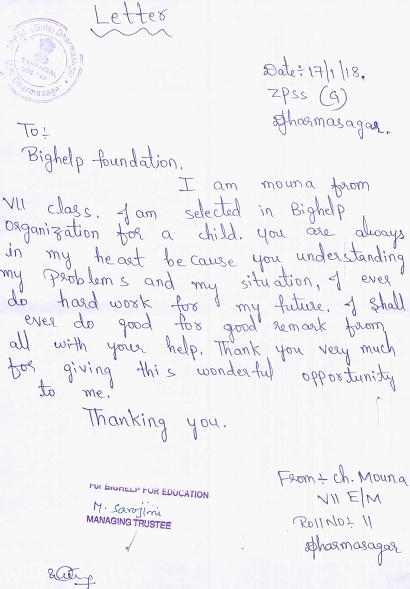 Letter
ZPSS (Girls) Dharmasagar
Date:- 17/1/18.
ZPSS (G)
Dharmasagar.
To:-
Bighelp foundation.
I am mouna from
VII class. I am selected in Bighelp
organization for a child. you are always
in my heart because you understanding
my Problems and my situation, I ever
do hard work for my future. I shall
ever do good for good remark from
all with your help. Thank you very much
for giving this wonderful opportunity
to me.
Thanking you.
From:- ch. Mouna
VII E/M
Roll No:- 11
Dharmasagar
For BIGHELP FOR EDUCATION
M. Sarojini
MANAGING TRUSTEE